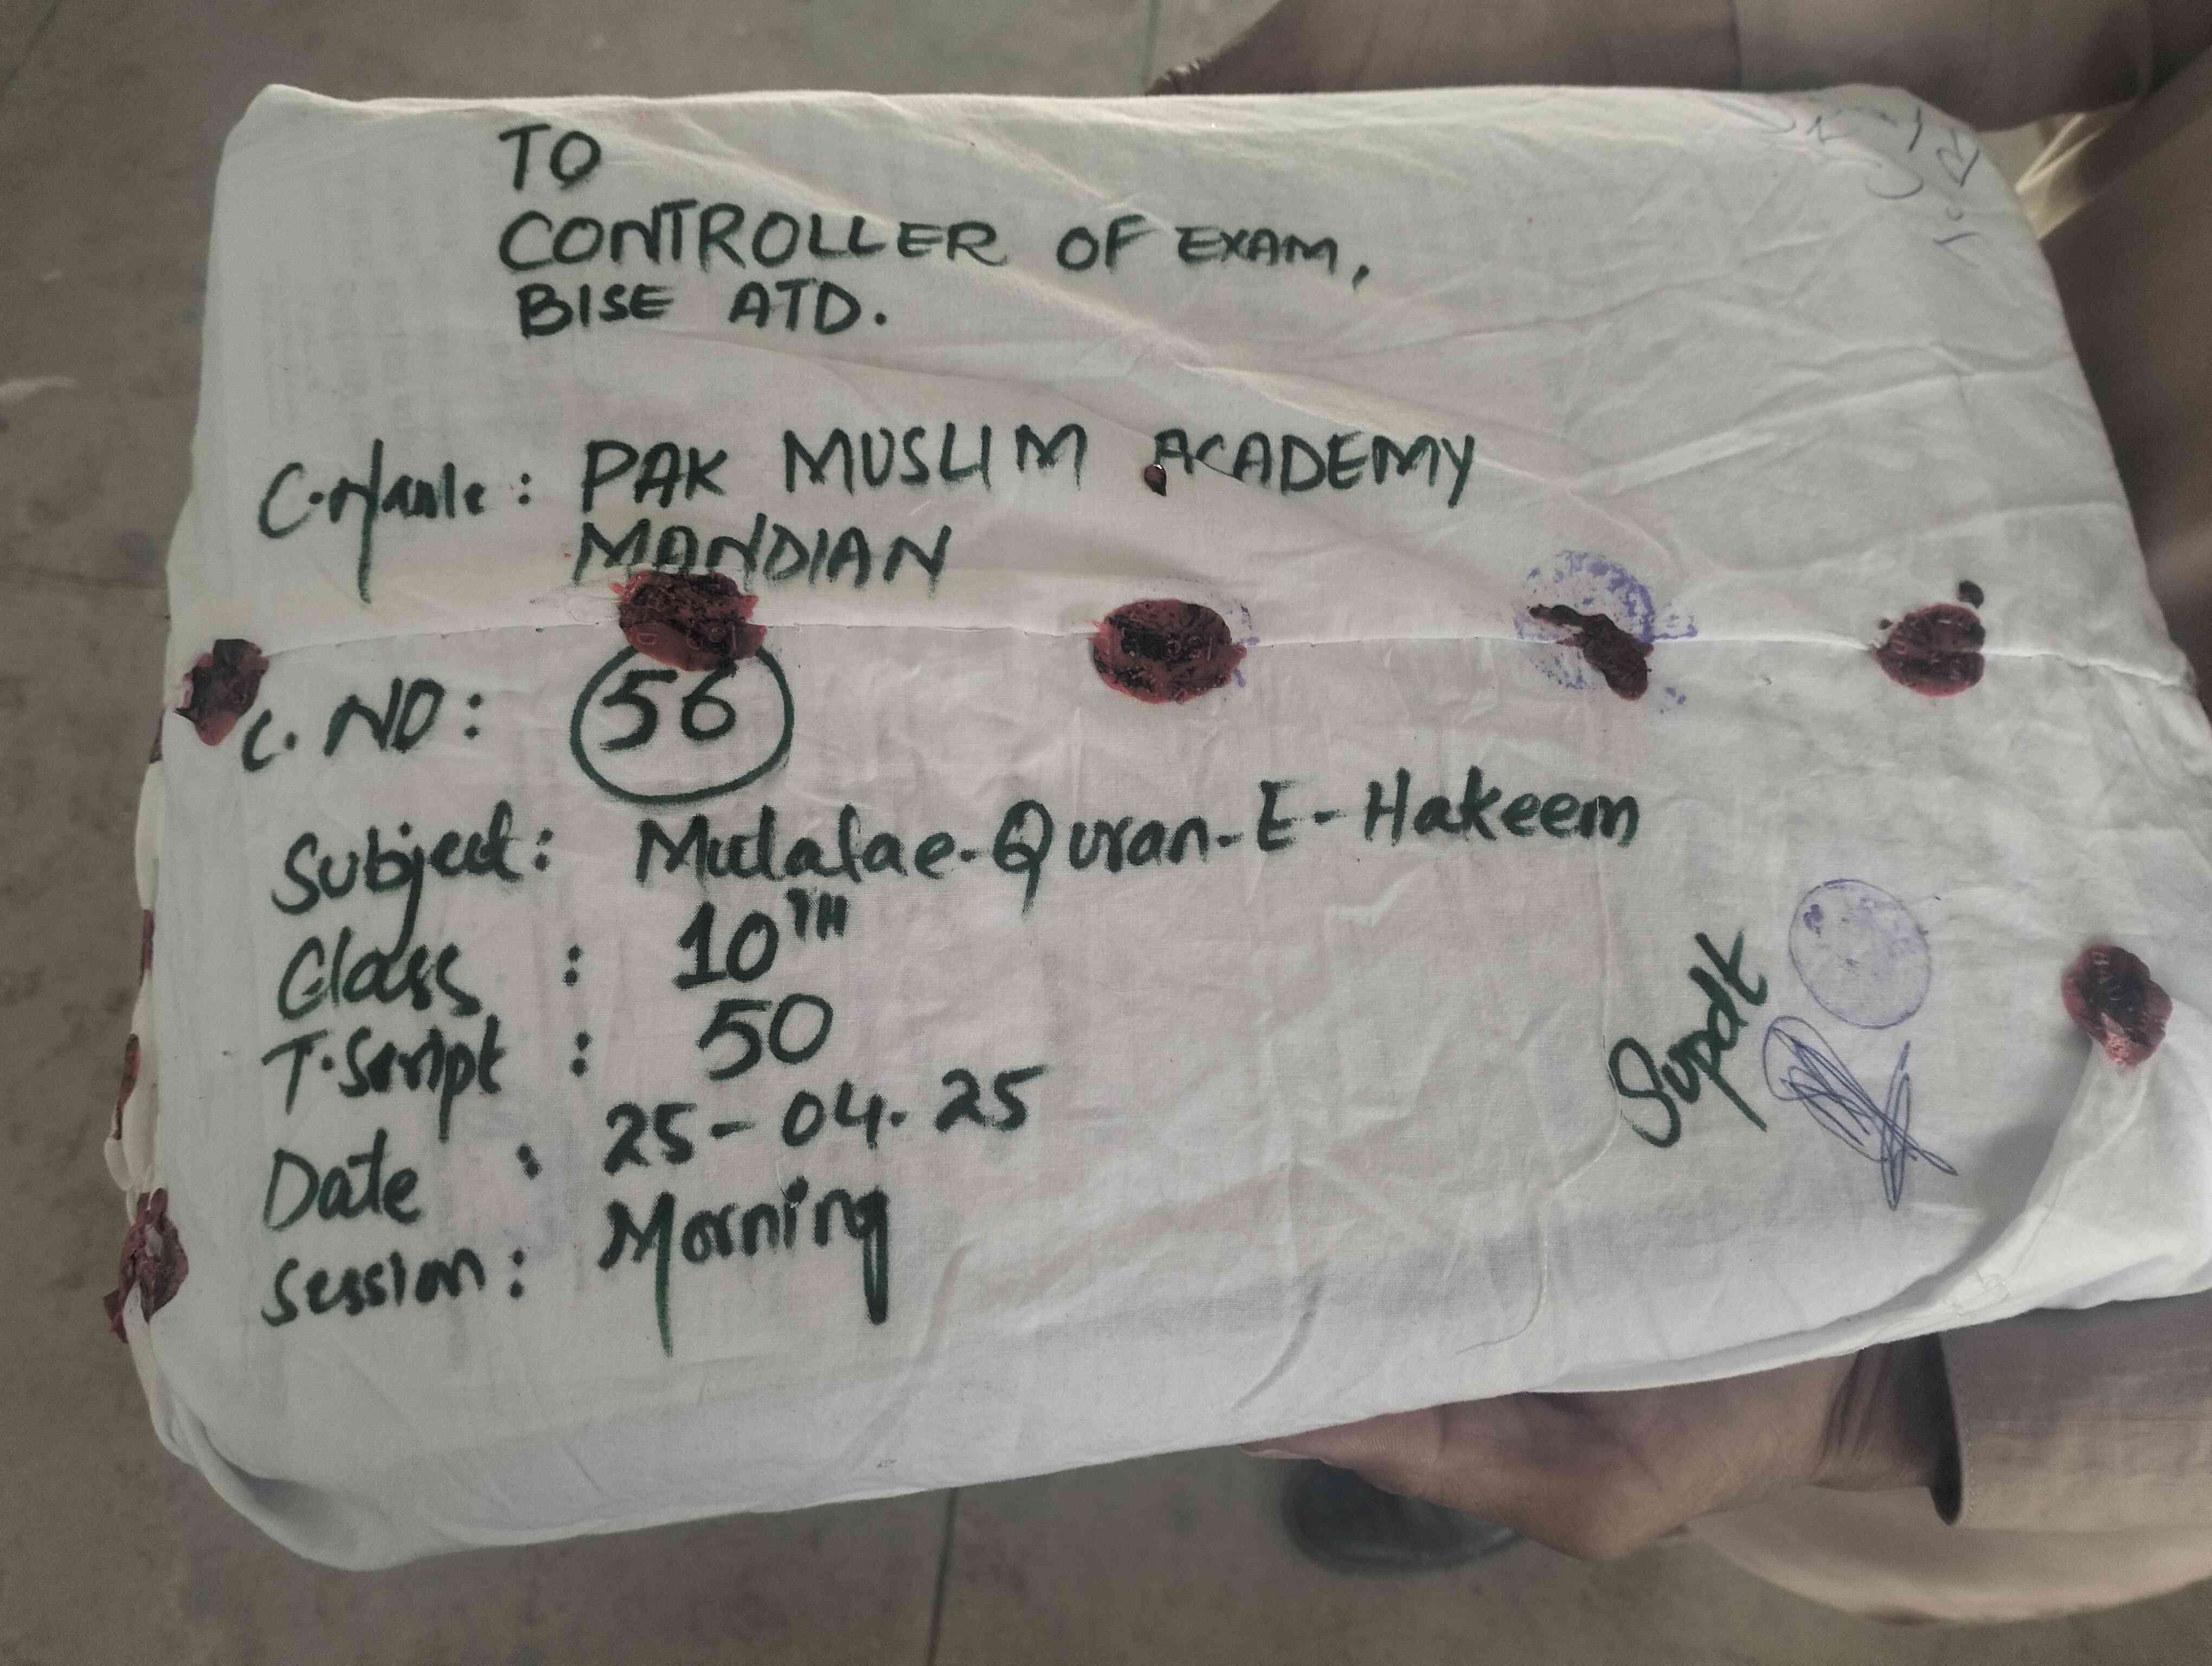 TO
CONTROLLER OF EXAM,
BISE ATD.
C.Name: PAK MUSLIM ACADEMY
MANDIAN
C.NO: 56
Subject: Mutalae-Quran-E-Hakeem
Class : 10TH
T.Script : 50
Date : 25-04.25
Session: Morning
Supdt